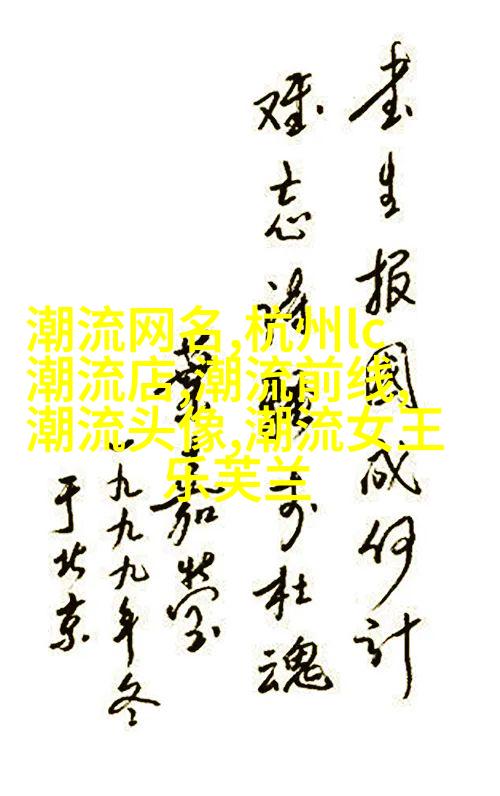 书生报國成何计
难忘诗骚李杜魂
葉嘉莹
一九九九年冬
于北京
潮流网名,杭州lc
潮流店,潮流前线,
潮流头像,潮流女王
乐芙兰